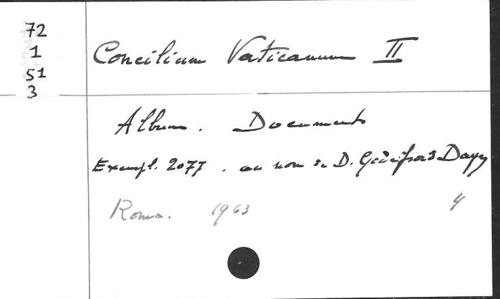 72
1
51
3
Concilium Vaticanum II
Album. Documents
Exempl. 2077. au nom de D. Godefroid Dayy
Roma. 1963
4